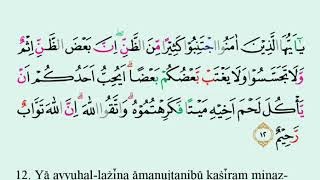 يٰٓاَيُّهَا الَّذِيْنَ اٰمَنُوا اجْتَنِبُوْا كَثِيْرًا مِّنَ الظَّنِّۖ اِنَّ بَعْضَ الظَّنِّ اِثْمٌ
وَّلَا تَجَسَّسُوْا وَلَا يَغْتَبْ بَّعْضُكُمْ بَعْضًاۗ اَيُحِبُّ اَحَدُكُمْ اَنْ
يَّأْكُلَ لَحْمَ اَخِيْهِ مَيْتًا فَكَرِهْتُمُوْهُۗ وَاتَّقُوا اللّٰهَۗ اِنَّ اللّٰهَ تَوَّابٌ
رَّحِيْمٌ ١٢
12. Yā ayyuhal-lażīna āmanujtanibū kaṡīram minaẓ-